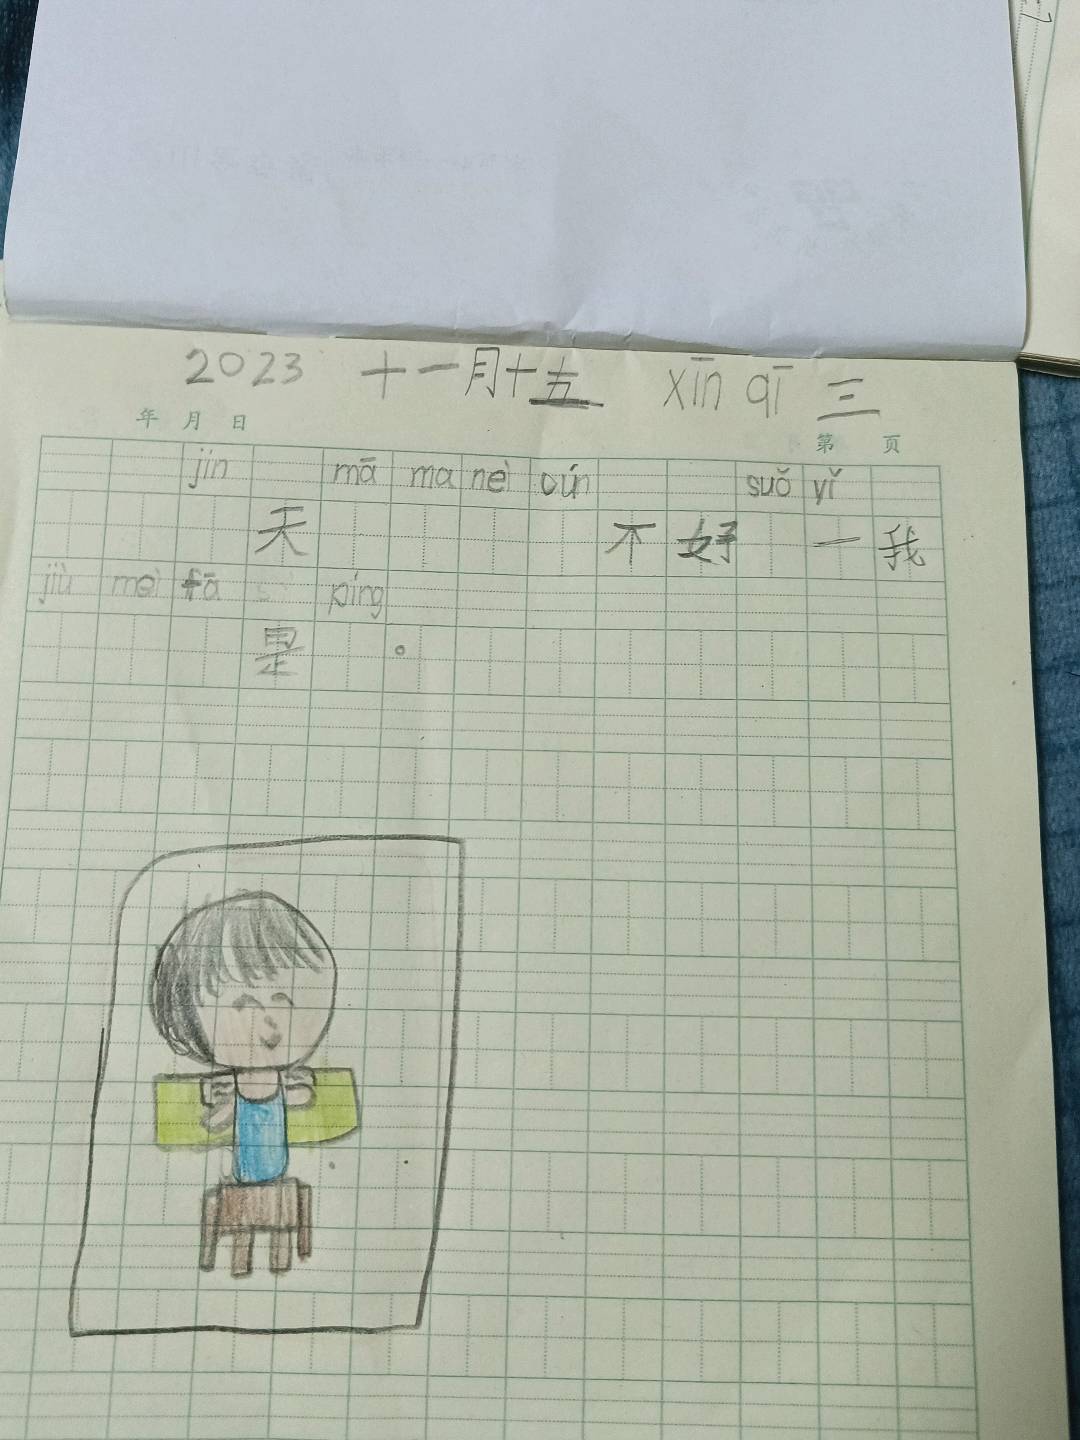 2023 十一月十五 xīn qī 三
年 月 日
第 页
jin mā ma neì cún suǒ yǐ
天 不 好 一 我
jiù meì fā píng
是 。